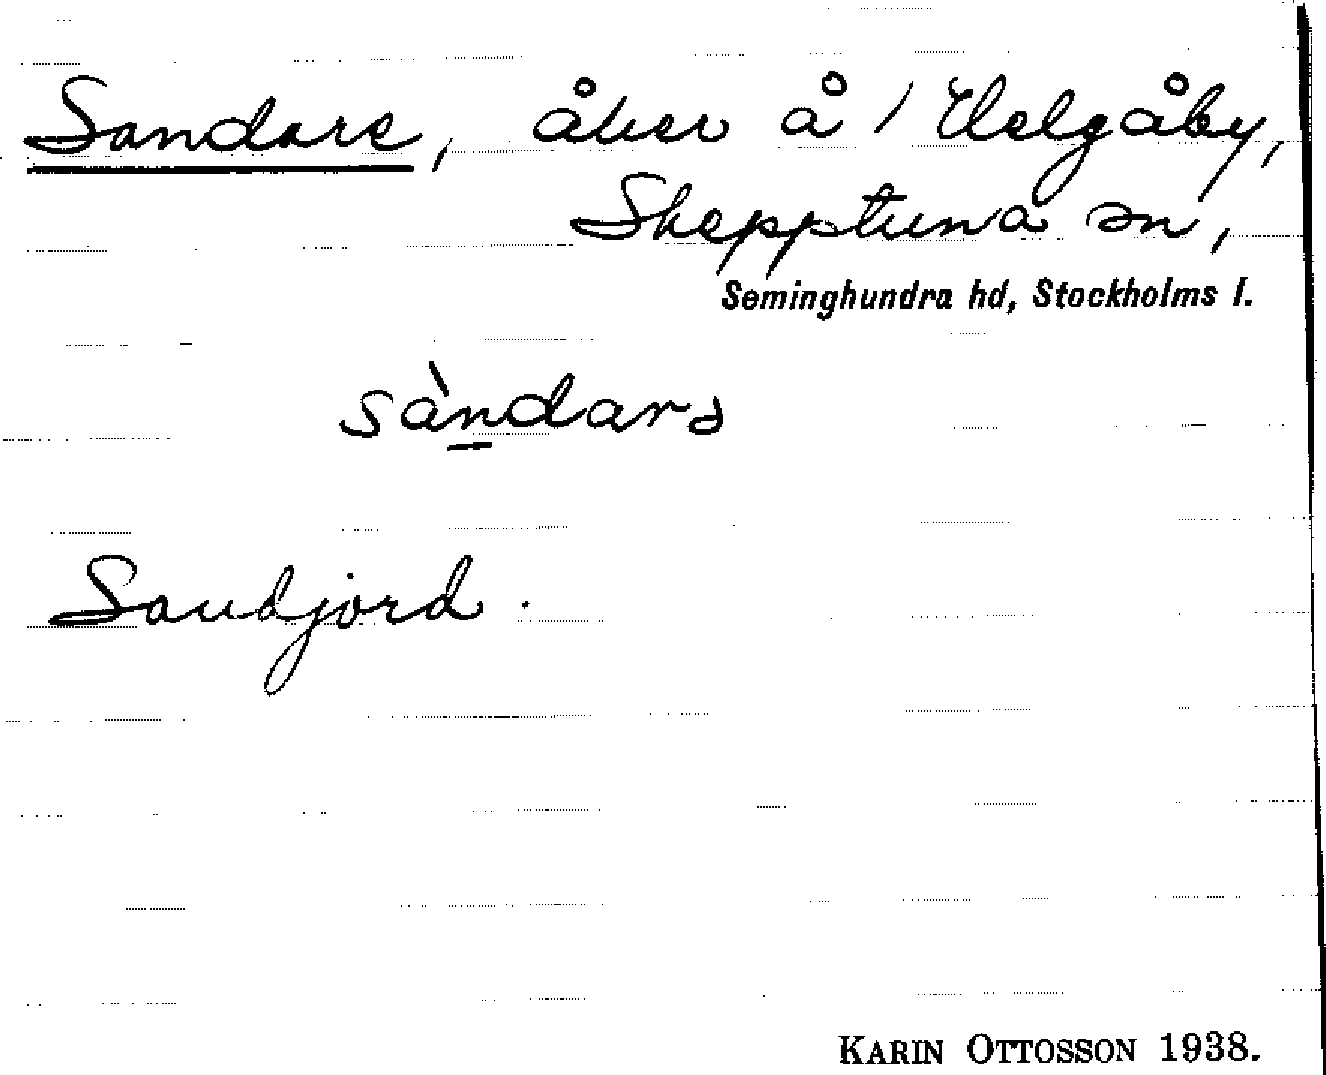 Sandare, åker å 1 Helgåby,
Skepptuna sn,
Seminghundra hd, Stockholms l.
sàndarə
Sandjord.
KARIN OTTOSSON 1938.